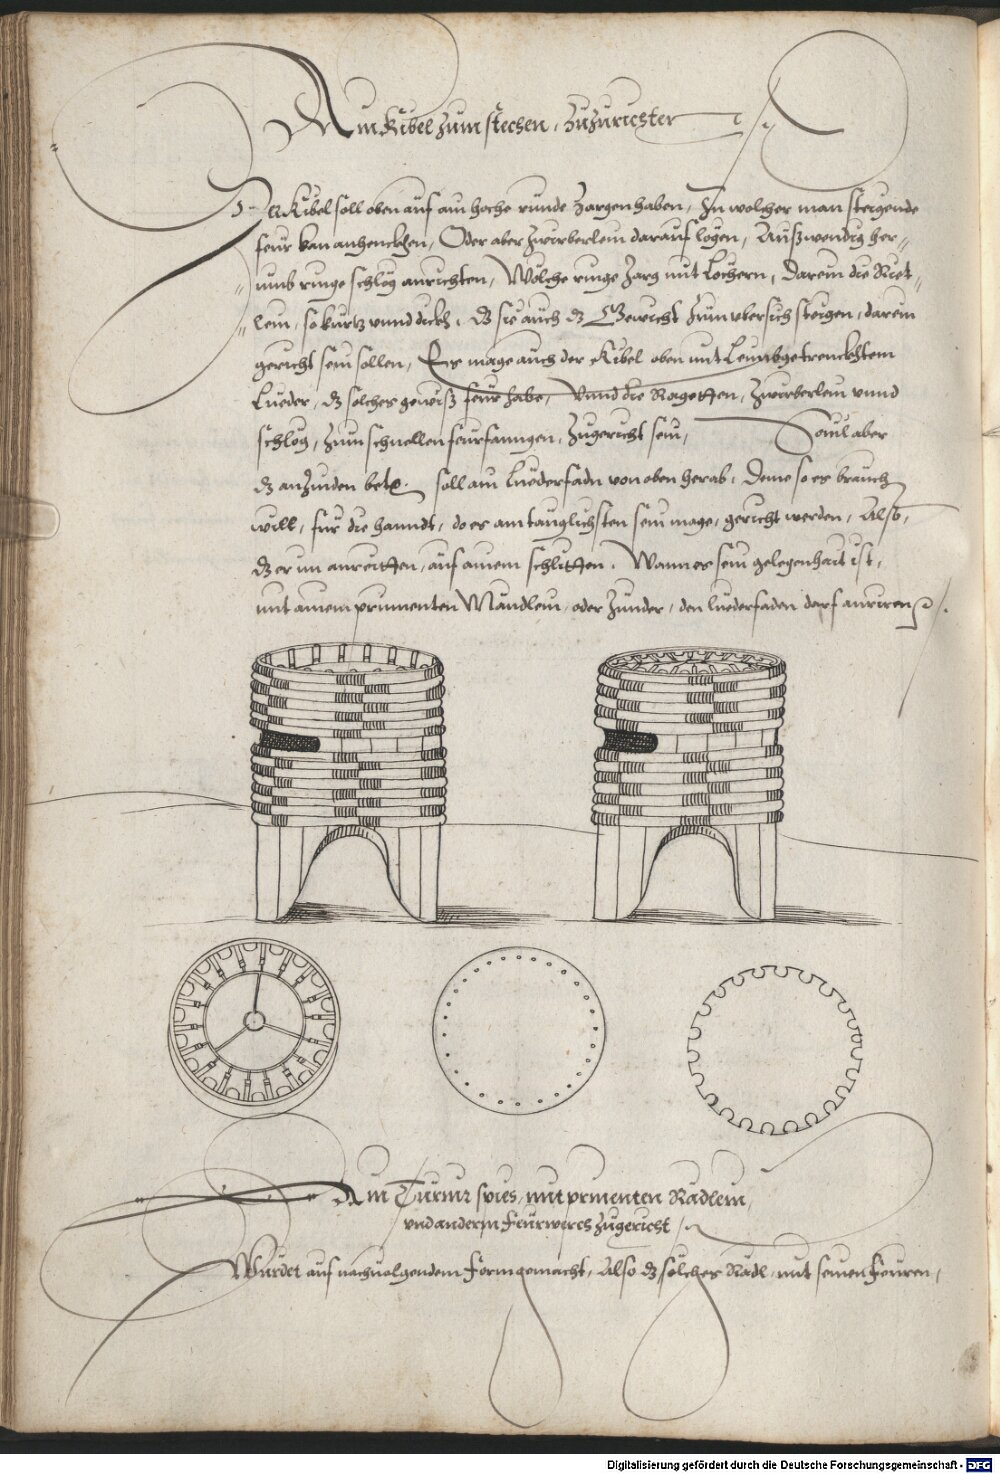 Ain Kibel zum stechen, zuzurichten
Der Kibel soll oben auf ain hoche runde Zargen haben, In wolcher man steigende
feur kan anhenckhen, Oder aber zwirberlein darauf legen, Außwendig her¬
umb ringe schleg anrichten, Wölche ringe Zarg mit Lochern, darein die Raket¬
lein, so kurtz unnd dickh, dz sie auch dz Gewicht zum ubersich steigen, darein
gericht sein sollen, Es mage auch der Kibel oben mit Leimbgetrencktem
Lueder, dz solches gewiß feur habe, Unnd die Rageten, Zwirberlein unnd
schleg, zum schnellen feurfanngen, zugericht sein, aber
dz anzinden soll ain Luederfadn von oben herab, deme so es brauch
will, für die hanndt, do es am tauglichsten sein mage, gericht werden, Also,
dz er im anreitten, auf ainem schlitten, Wann es sein gelegenhait ist,
mit ainem prinnenten Mandlein, oder Zunder, den luederfaden darf anrieren
Ain Turnir spies, mit prinenten Radlein,
und anderm Feurwerch zugericht
Würdet auf nachvolgendem form gemacht, Also dz solches Rädl, mit seinen feuren,
Digitalisierung gefördert durch die Deutsche Forschungsgemeinschaft - DFG